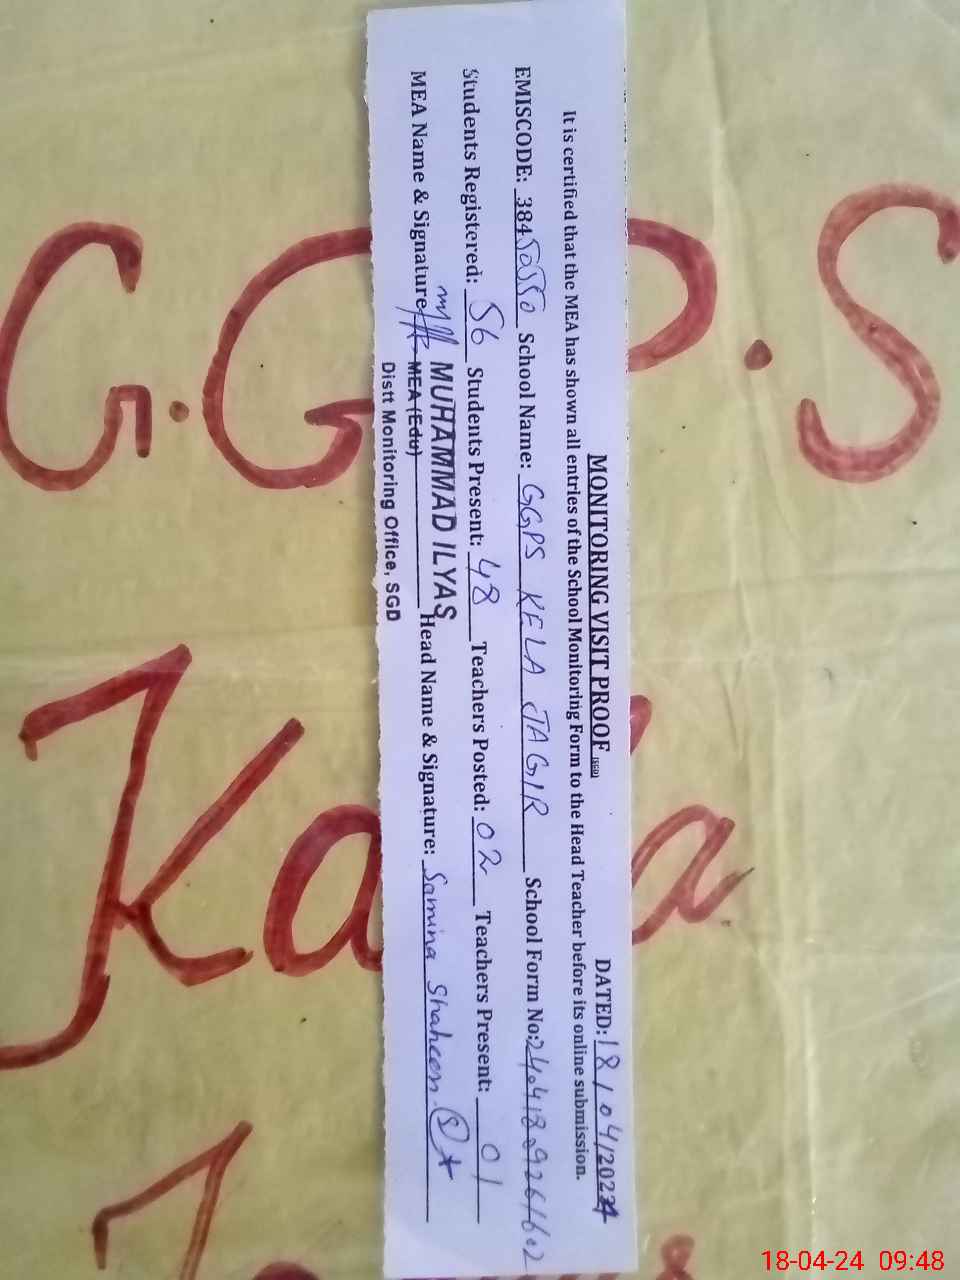 MONITORING VISIT PROOF (SGD) DATED: 18/04/2024
It is certified that the MEA has shown all entries of the School Monitoring Form to the Head Teacher before its online submission.
EMISCODE: 38450550 School Name: GGPS KELA JAGIR School Form No: 24041809261602
Students Registered: 56 Students Present: 48 Teachers Posted: 02 Teachers Present: 01
MEA Name & Signature: MUHAMMAD ILYAS Head Name & Signature: Samina Shaheen
MEA (Edu)
Distt Monitoring Office, SGD
G.G.P.S
18-04-24 09:48